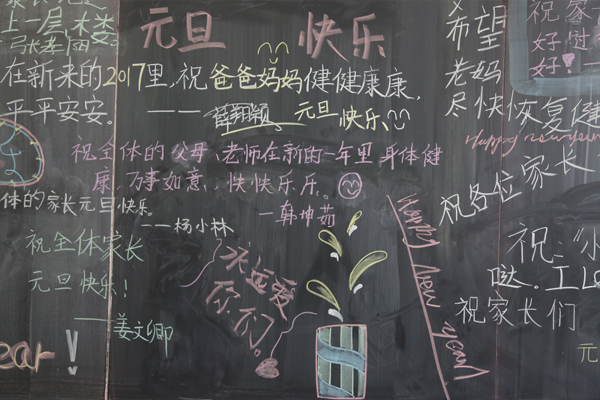 上一层楼
元旦 快乐
在新来的2017里,祝爸爸妈妈健健康康,
平平安安。 ——薛翔颖 元旦快乐
祝全体的父母、老师在新的一年里,身体健
康,万事如意、快快乐乐。
——韩坤茹
体的家长元旦快乐。
——杨小林
祝全体家长
元旦快乐!
——姜文卿
ear!
永远爱
你们。
Happy New year!
希望
老妈
尽快恢复健
祝家
好
好!
Happy newyear
祝各位家长
祝:“小
哒.I Lo
祝家长们
元